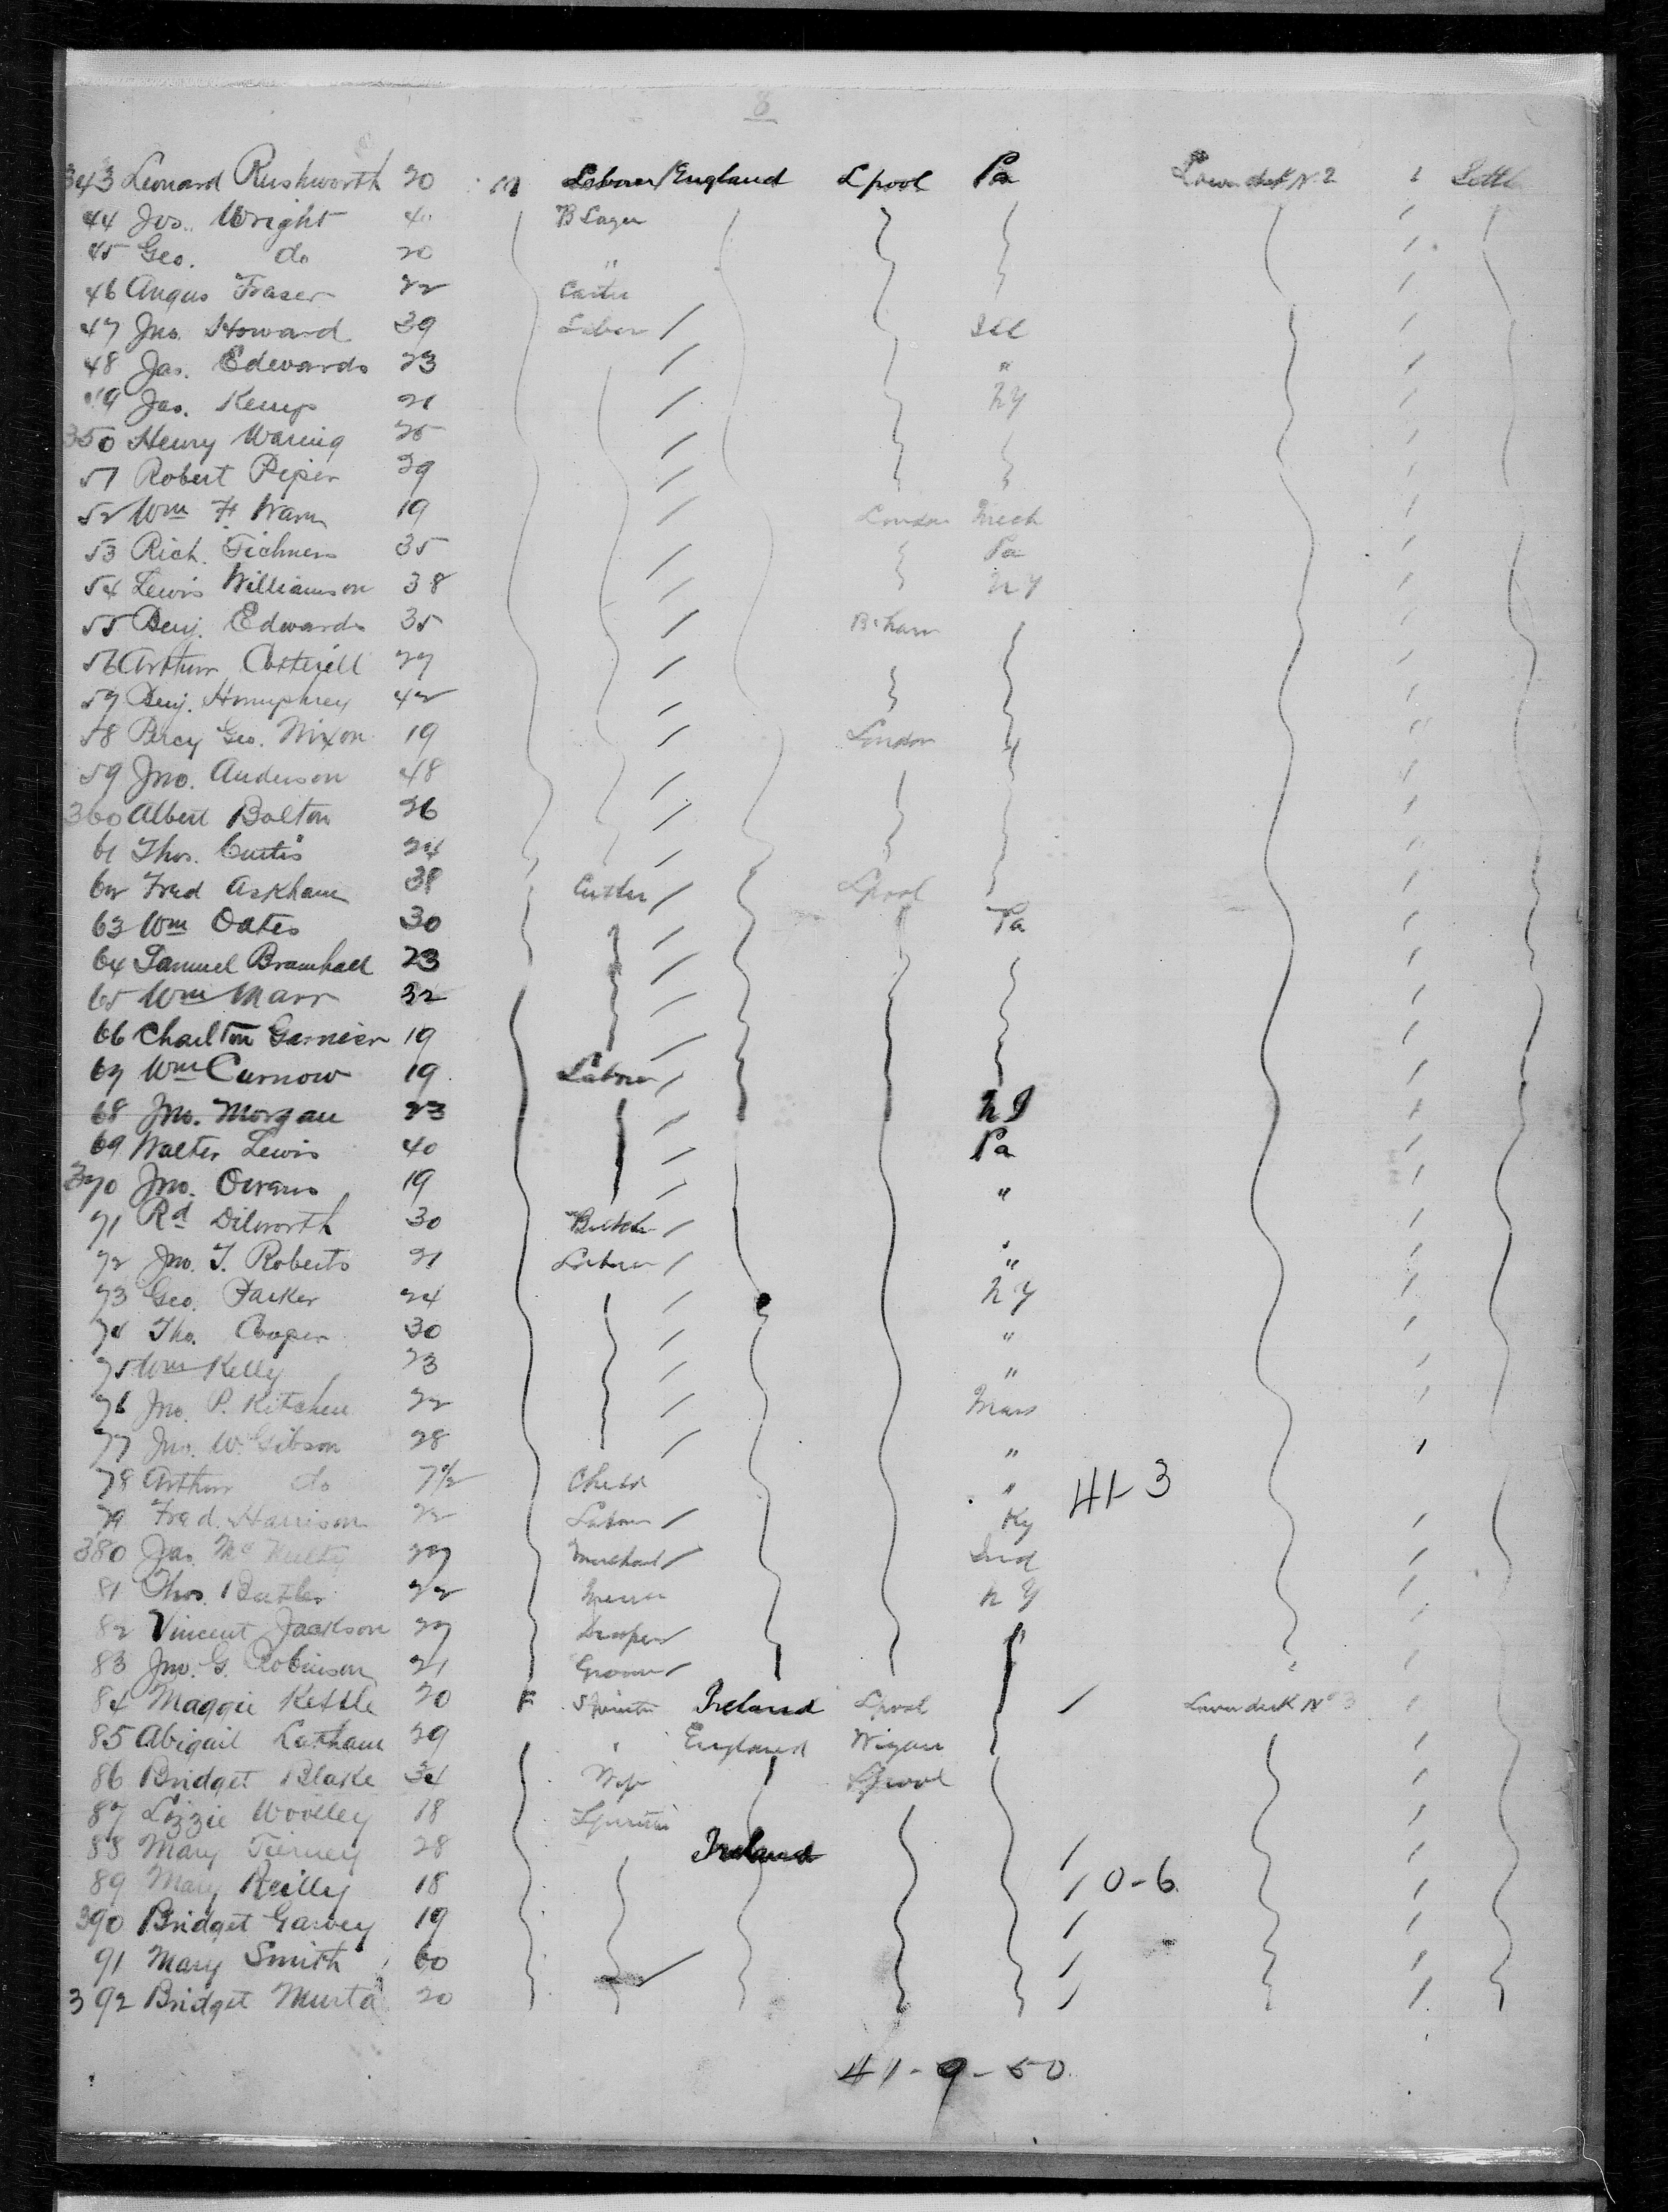 8
343 Leonard Rushworth 20 m Laborer / England Lpool Pa Lower deck No 2 1 Settle
44 Jos. Wright 4 B Layer
45 Geo. do 20 "
46 Angus Fraser 22
47 Jno. Howard 39 Labor / Ill
48 Jas. Edwards 23 / "
49 Jas. Kemp 21 / NY
350 Henry Waring 25 /
51 Robert Piper 29 /
52 Wm F. Warn 19 / London Mich
53 Rich. Tichner 35 / Pa
54 Lewis Williamson 38 / NY
55 Benj. Edwards 35 / B'ham
56 Arthur Cotterill 27 /
57 Benj. Humphrey 42 /
58 Percy Geo. Nixon 19 / London
59 Jno. Anderson 48 /
360 Albert Bolton 26 /
61 Thos. Curtis 24 /
62 Fred Askham 38 Cutler / Lpool
63 Wm Oates 30 / Pa
64 Samuel Bramhall 23 /
65 Wm Marr 32 /
66 Charlton Garnier 19 /
67 Wm Curnow 19 Laborer /
68 Jno. Morgan 23 / NJ
69 Walter Lewis 40 / Pa
370 Jno. Owens 19 / "
71 Rd Dilworth 30 /
72 Jno. T. Roberts 21 Laborer / "
73 Geo. Parker 24 / NY
74 Tho. Cooper 30 / "
75 Wm Kelly 23 / "
76 Jno. P. Kitchen 22 / Mass
77 Jno. W. Gibson 28 / "
78 Arthur do 7 1/2 Child " 41-3
79 Fred. Harrison 22 Laborer / Ky
380 Jas. McNulty 27 Merchant / Ind
81 Thos. Butler 22 NY
82 Vincent Jackson 27 Draper /
83 Jno. G. Robinson 21 Groom /
84 Maggie Kettle 20 F Spinster Ireland Lpool / Lower deck No 3
85 Abigail Latham 29 " England Wigan
86 Bridget Blake 34 Wife Lpool
87 Lizzie Woolley 18 Spinster
88 Mary Tierney 28 Ireland /
89 Mary Reilly 18 / 0-6
390 Bridget Garvey 19 /
91 Mary Smith 60 /
392 Bridget Murta 20 /
41-9-50